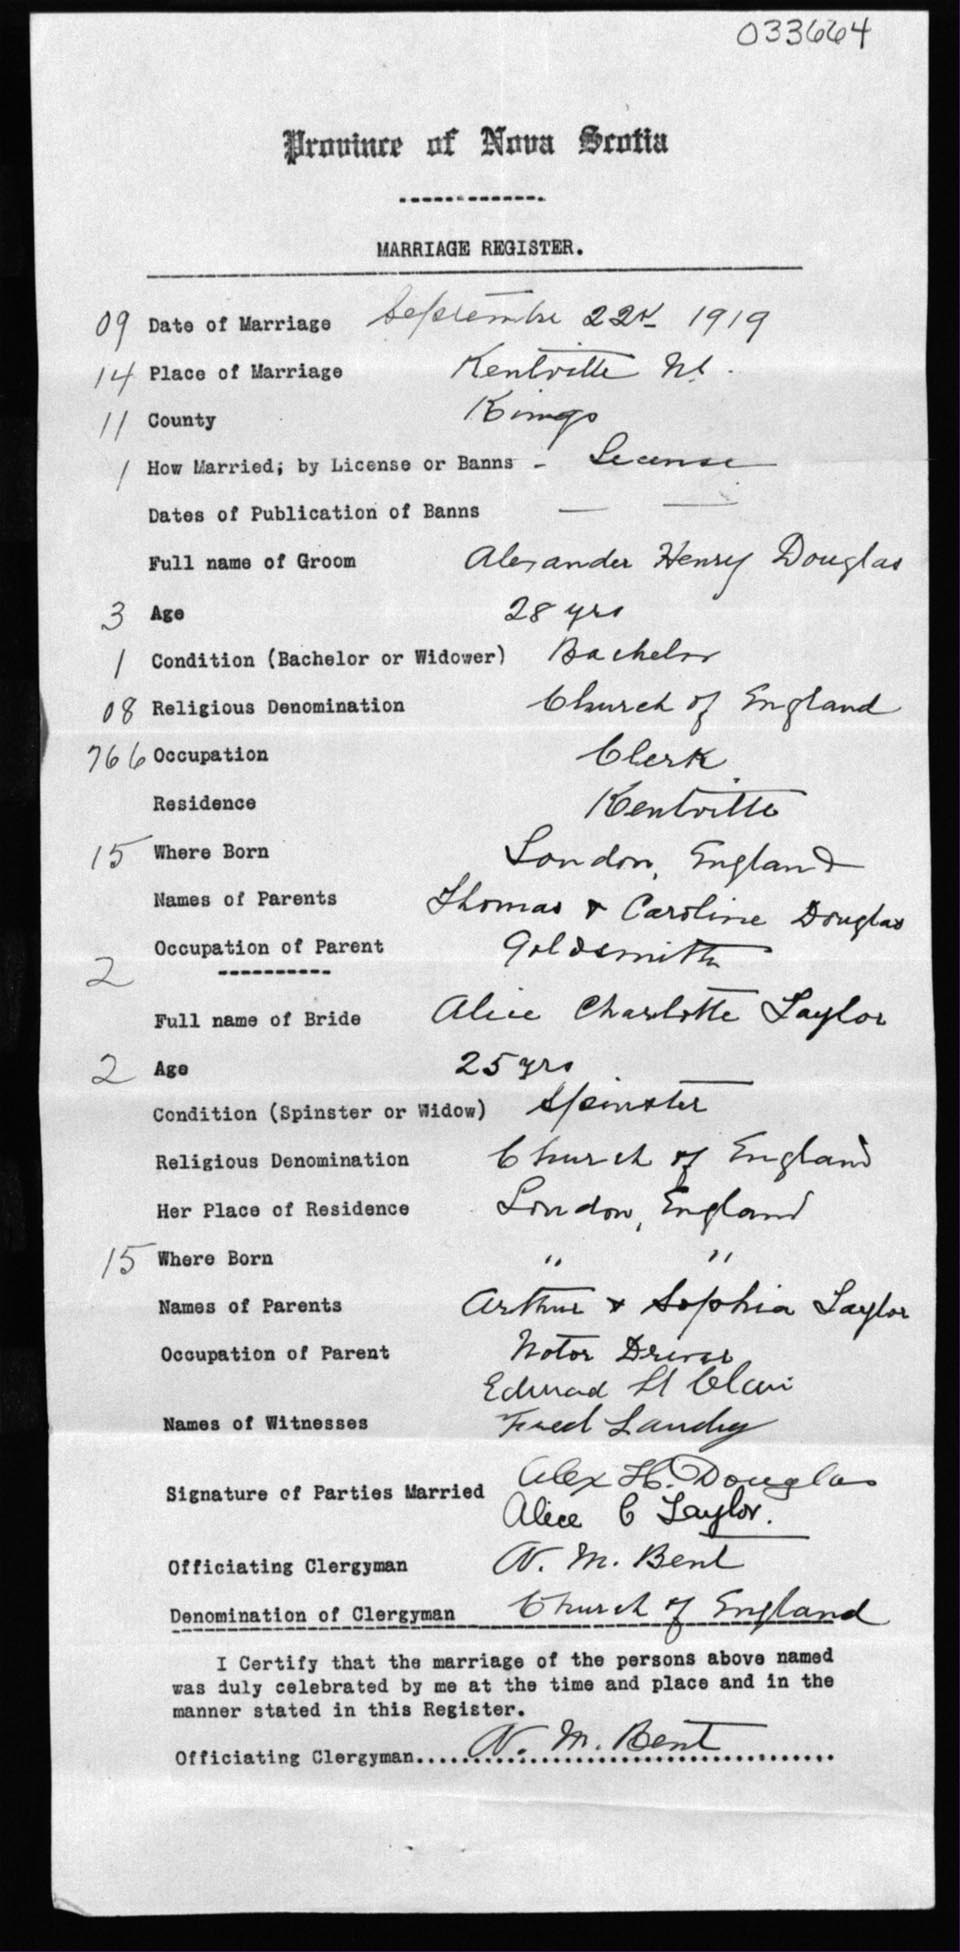 033664
Province of Nova Scotia
MARRIAGE REGISTER.
09 Date of Marriage September 22nd 1919
14 Place of Marriage Kentville NS.
11 County Kings
1 How Married; by License or Banns - License
Dates of Publication of Banns — —
Full name of Groom Alexander Henry Douglas
3 Age 28 yrs
1 Condition (Bachelor or Widower) Bachelor
08 Religious Denomination Church of England
766 Occupation Clerk
Residence Kentville
15 Where Born London, England
Names of Parents Thomas & Caroline Douglas
2 Occupation of Parent Goldsmith
Full name of Bride Alice Charlotte Taylor
2 Age 25 yrs
Condition (Spinster or Widow) Spinster
Religious Denomination Church of England
Her Place of Residence London, England
15 Where Born " "
Names of Parents Arthur & Sophia Taylor
Occupation of Parent Motor Driver
Edward St Clair
Names of Witnesses Fred Landry
Alex H. Douglas
Signature of Parties Married
Alice C Taylor.
Officiating Clergyman N. M. Bent
Denomination of Clergyman Church of England
I Certify that the marriage of the persons above named
was duly celebrated by me at the time and place and in the
manner stated in this Register.
Officiating Clergyman.....N. M. Bent.....